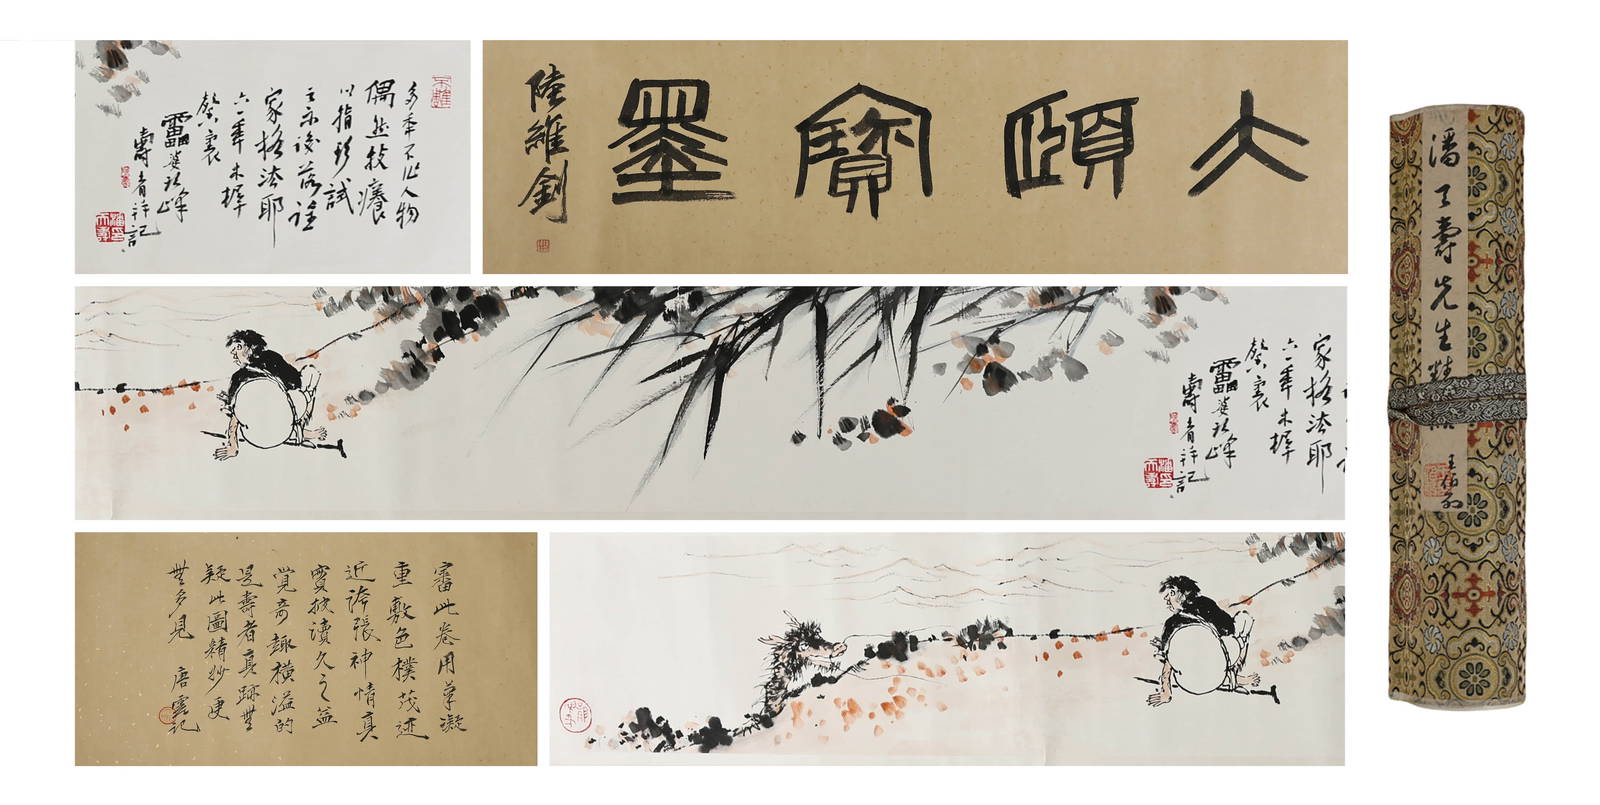 多年不作人物
偶然技癢
以指頭試
落誰
家格法耶
六一年木樨
馨裏
靁婆頭峰
壽者并記
大頤寶墨
陸維釗
家格法耶
六一年木樨
馨裏
靁婆頭峰
壽者并記
審此卷用筆凝
重敷色樸茂迹
近誇張神情真
實披讀久之益
覺奇趣橫溢的
是壽者真跡無
疑此圖精妙更
無多見 唐雲記
潘天壽先生精
王伯敏